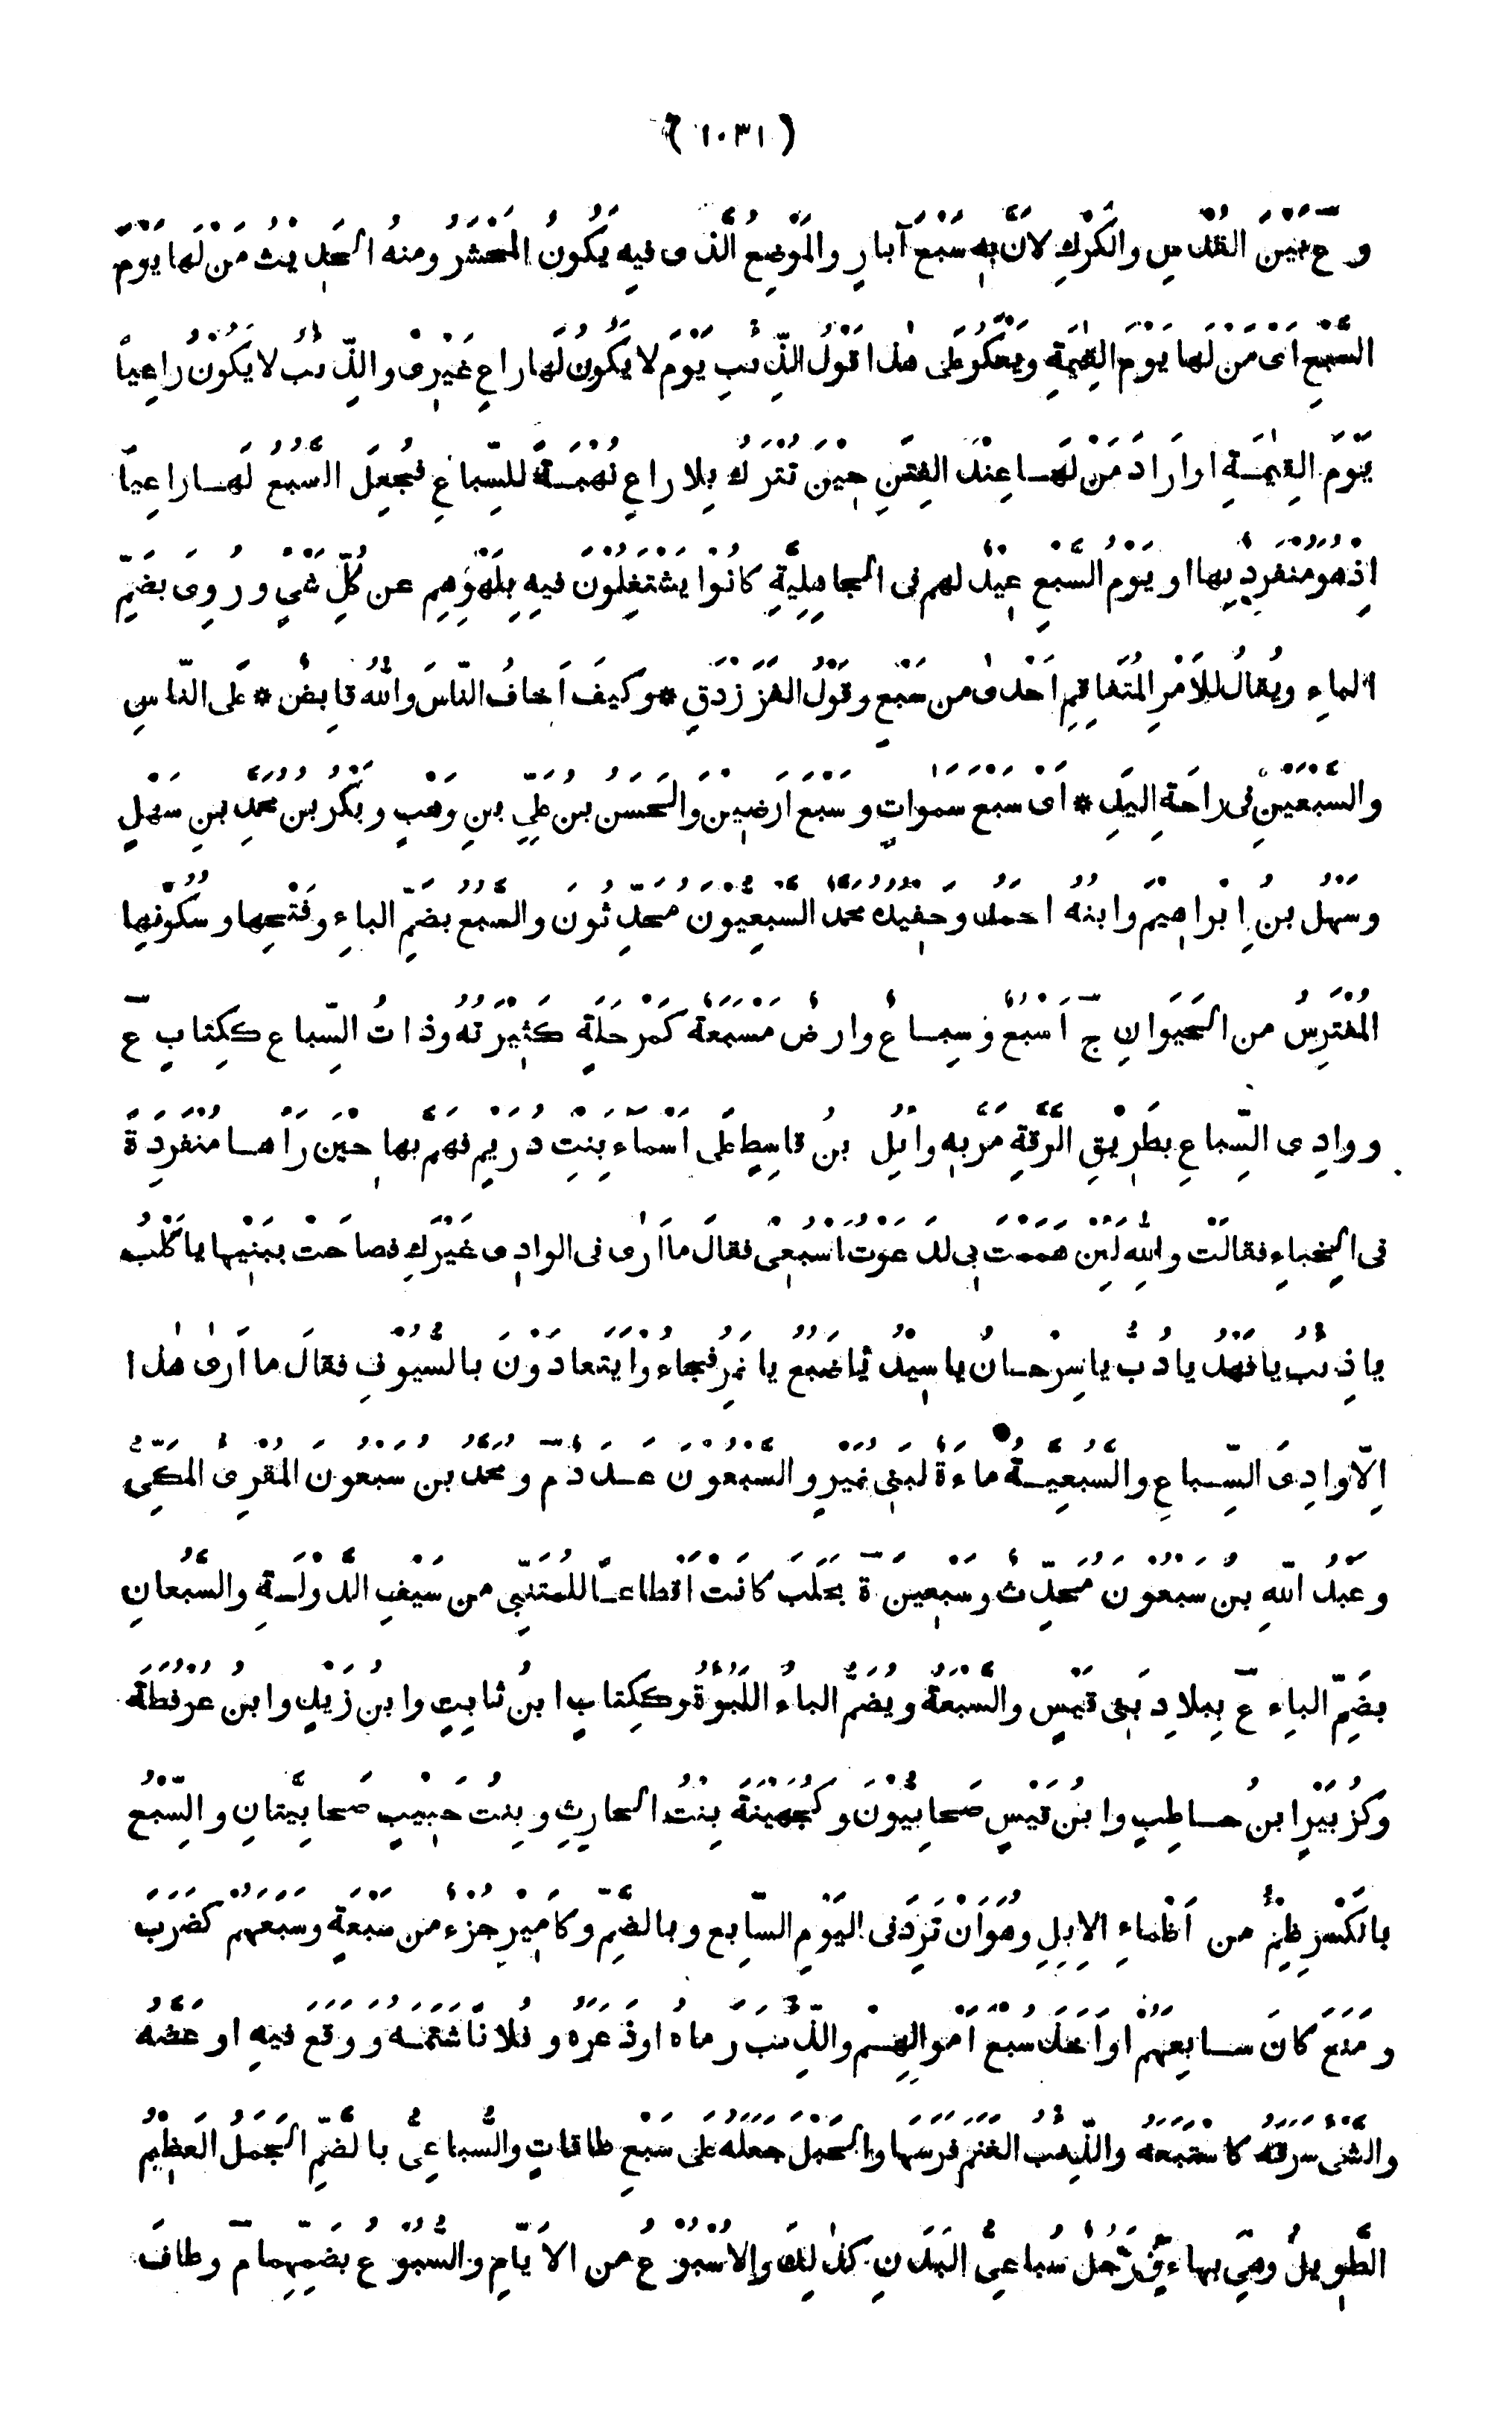 ( ١٠٣١ )
و ع بَيْنَ القُدْسِ والكَرْكِ لانّ بِهِ سَبْعَ آبارٍ والمَوْضِعُ الّذى فيه يكونُ المَحْشَرُ ومنهُ الحَدِيثُ مَنْ لَها يَوْمَ
السَّبُعِ اَىْ مَنْ لها يَوْمَ القِيٰمَةِ ويَعْكُرُ عَلى هٰذا قَوْلُ الذِّئْبِ يَوْمَ لا يَكُونُ لَها راعٍ غَيْرِى والذِّئبُ لا يَكُوْنُ راعِياً
يَوْمَ القِيٰمَةِ اوارَادَ مَنْ لَها عِنْدَ الفِتَنِ حِيْنَ تُتْرَكُ بِلا راعٍ نُهْبَةً للسِّباعِ فجُعِلَ السَّبُعُ لَها راعِياً
اِذْ هو مُنْفَرِدٌ بِها او يَوْمُ السَّبْعِ عِيْدٌ لهم فى الجاهِلِيَّةِ كانُوْا يَشْتَغِلُونَ فيهِ بِلَهْوِهِم عن كُلِّ شَيْءٍ و رُوِىَ بضَمِّ
الباءِ ويُقالُ للاَمْرِ المُتَفاقِمِ اِحْدٰى من سَبْعٍ وقولُ الفَرَزْدَقِ * وكيفَ اَخافُ النّاسَ واللّٰهُ قابِضٌ * عَلى النّاسِ
والسَّبْعَيْنِ فى راحَةِ اليَدِ * اَىْ سَبْعِ سمواتٍ و سَبْعِ اَرَضِيْنَ والحَسَنُ بن عَلِيِّ بنِ وَهْبٍ و بَكْرُ بن محمّدِ بنِ سَهْلٍ
وسَهْلُ بنُ اِبْراهِيْمَ وابْنُهُ احمدُ وحَفِيْدُه محمّدٌ السَّبْعِيُّونَ مُحَدِّثُونَ والسَّبُعُ بضَمِّ الباءِ وفَتْحِها و سُكُوْنِها
المُفْتَرِسُ من الحَيَوانِ ج اَسْبُعٌ وسِباعٌ وارضٌ مَسْبَعَةٌ كمَرْحَلَةٍ كَثِيْرَتُه وذاتُ السِّباعِ ككِتابٍ ع
و وادِى السِّباعِ بطَرِيْقِ الرَّقَّةِ مَرَّ بِهِ وائِلُ بنُ قاسِطٍ عَلى اَسْماءَ بِنْتِ دُرَيْمٍ فهَمَّ بها حِيْنَ رَآها مُنْفَرِدَةً
فى الخِباءِ فقالَتْ واللّٰهِ لَئِنْ هَمَمْتَ بِى لدَعَوْتُ اَسْبُعِى فقالَ ما اَرٰى فى الوادِى غَيْرَكِ فصاحَتْ ببَنِيْها يا كَلْبُ
يا ذِئْبُ يا فَهْدُ يا دُبُّ يا سِرْحانُ يا سِيْدُ يا ضَبُعُ يا نَمِرُ فجاءوا يَتَعادَوْنَ بالسُّيُوْفِ فقالَ ما اَرٰى هٰذا
اِلّا وادِىَ السِّباعِ والسَّبُعِيَّةُ ماءةٌ لبَنِى نُمَيْرٍ والسَّبْعُوْنَ عَدَدٌ م و محمّدُ بن سَبْعُونَ المُقْرِىُ المَكِّيُّ
و عَبْدُ اللّهِ بنُ سَبْعُوْنَ مُحَدِّثٌ و سَبْعِيْنَ ة بحَلَبَ كانَتْ اِقْطاعاً للمُتَنَبِّى من سَيْفِ الدَّوْلَةِ والسَّبُعانِ
بضَمِّ الباءِ ع ببِلادِ بَنى قَيْسٍ والسَّبْعَةُ و يُضَمُّ الباءُ اللَّبُوَةُ وككِتابٍ ابنُ ثابِتٍ وابنُ زَيْدٍ وابنُ عُرْفُطَةَ
وكزُبَيْرٍ ابنُ حاطِبٍ وابنُ قَيْسٍ صَحابِيُّوْنَ وكجُهَيْنَةَ بِنْتُ الحارِثِ و بِنْتُ حَبِيْبٍ صَحابِيَّتانِ والسِّبْعُ
بالكَسْرِ ظِمْءٌ من اَظْماءِ الاِبِلِ وهُوَ اَنْ تَرِدَ فى اليَوْمِ السّابِعِ و بالضَّمِّ وكاَمِيْرٍ جُزْءٌ من سَبْعَةٍ و سَبَعَهُم كضَرَبَ
و مَنَعَ كانَ سابِعَهُمْ اواَخَذَ سُبْعَ اَمْوالِهِم والذِّئْبَ رَماه اوذَعَرَه و فُلانًا شَتَمَه و وَقَعَ فيه او عَضَّهُ
والشَّىْءَ سَرَقَهُ كاسْتَبَعَهُ والذِّئْبُ الغَنَمَ فَرَسَها والحَبْلَ جَعَلَهُ عَلى سَبْعِ طاقاتٍ والسُّباعِىُّ بالضَّمِّ الجَمَلُ العَظِيْمُ
الطَّوِيلُ وهِيَ بهاءٍ ورَجُلٌ سُباعِىُّ البَدَنِ كذٰلِكَ والاُسْبُوْعُ من الاَيّامِ والسُّبُوْعُ بضَمِّهِما م وطافَ